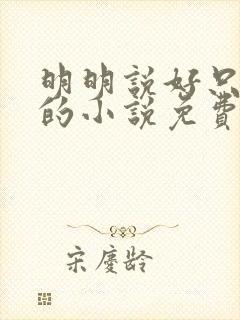 明明説好只
的小説免費
宋慶齡